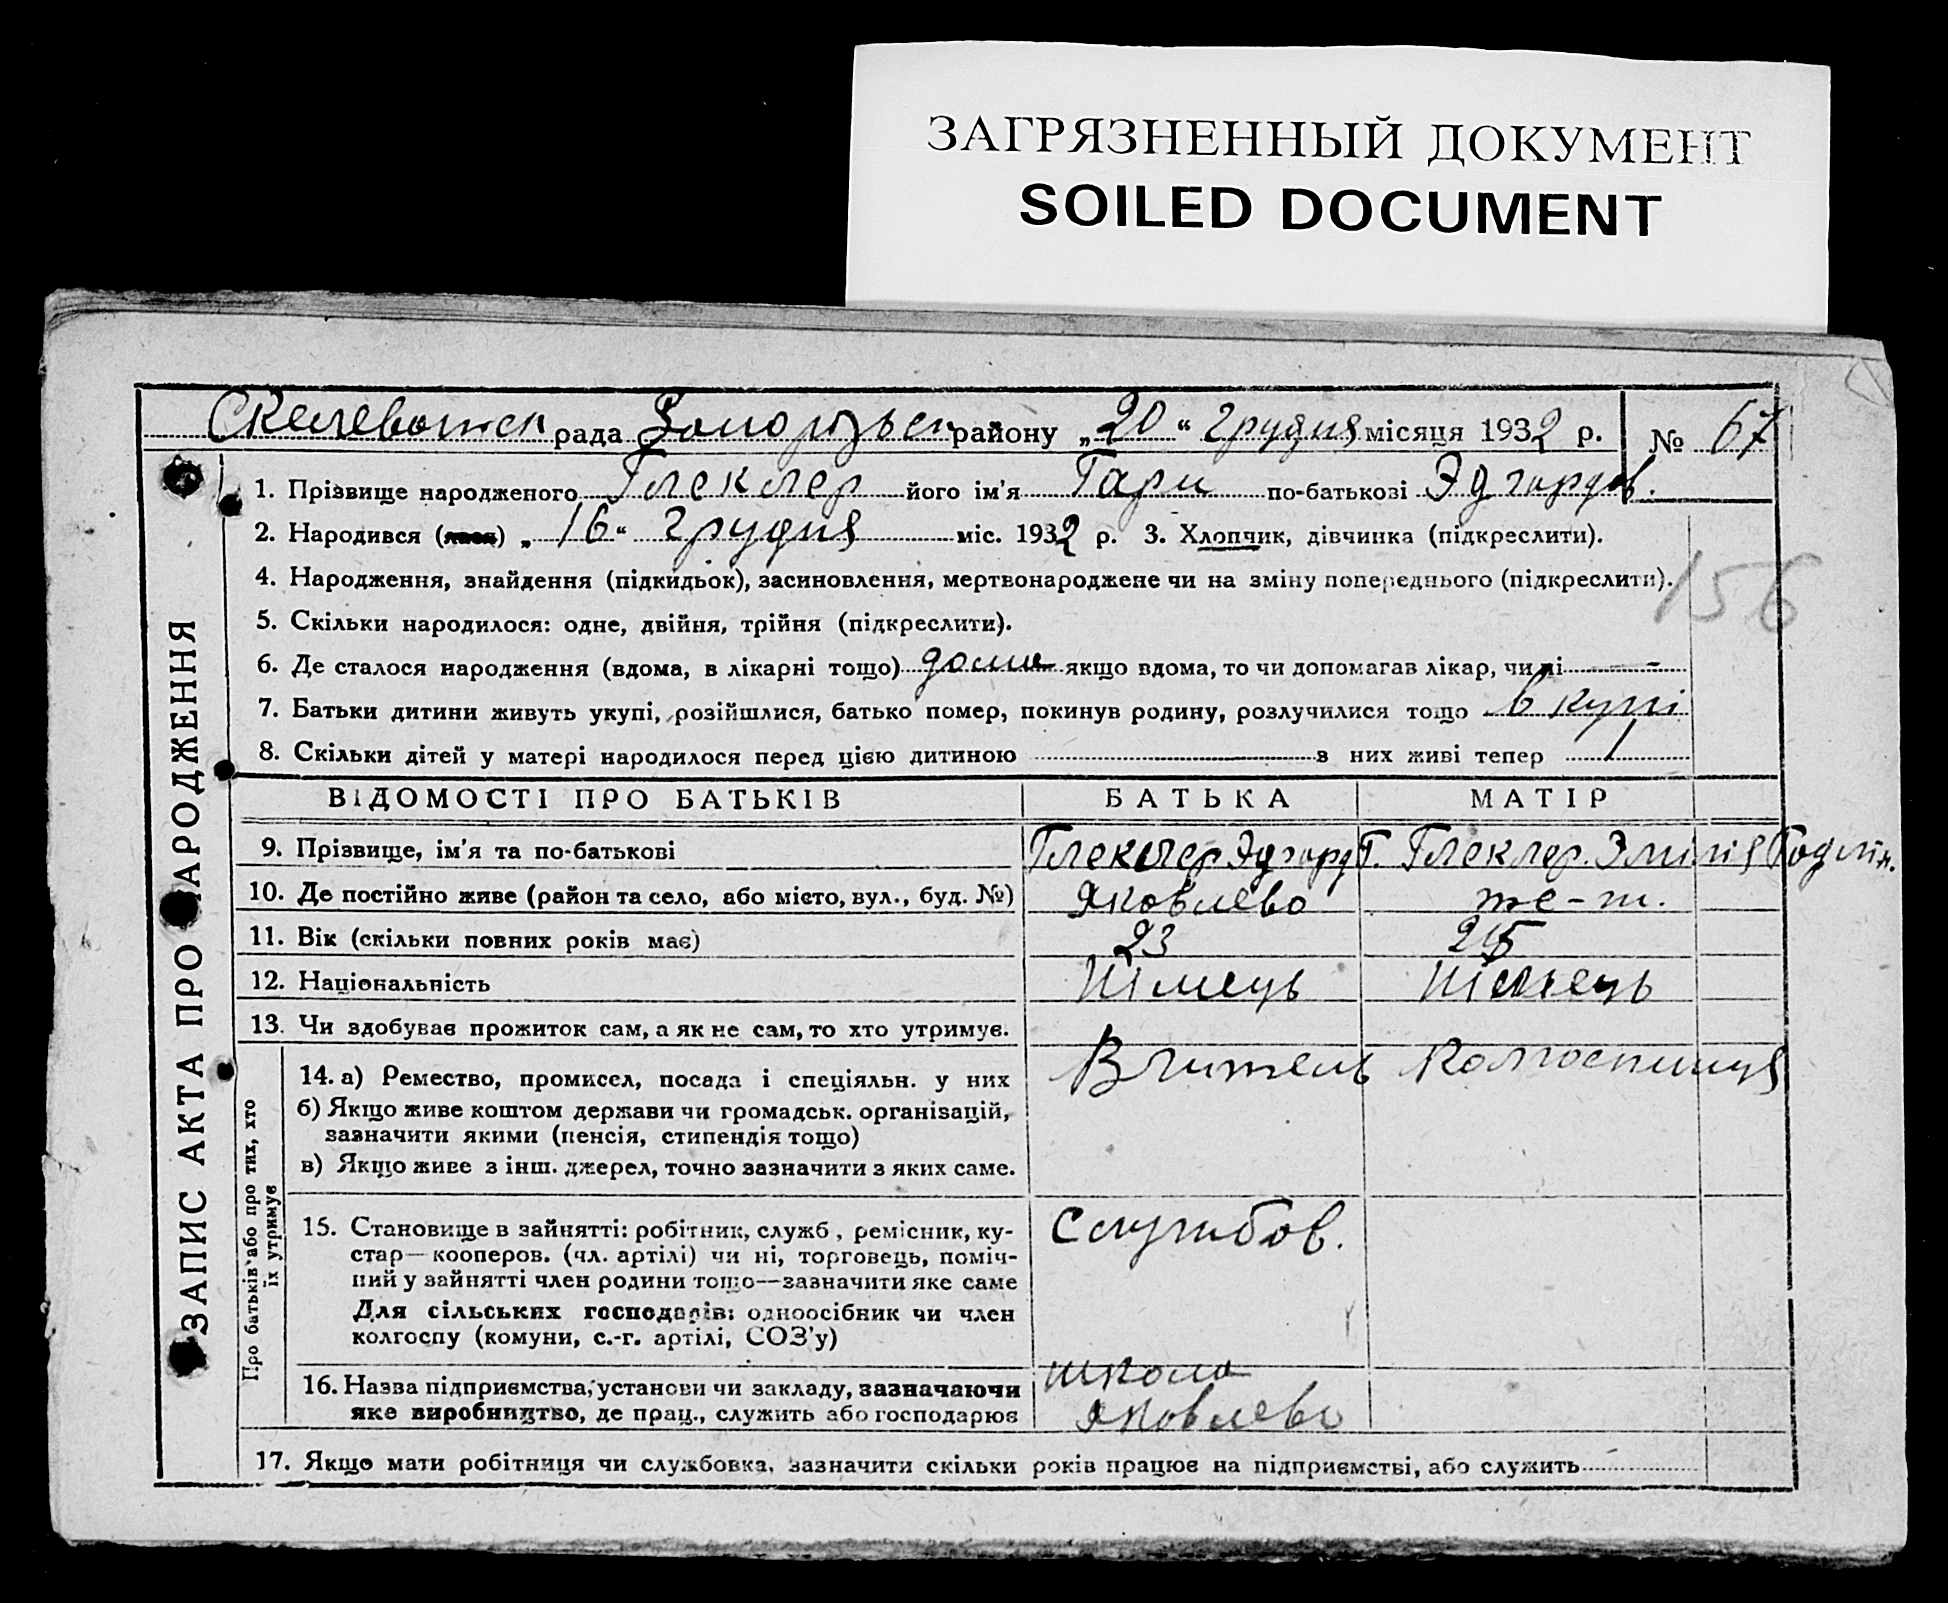 ЗАГРЯЗНЕННЫЙ ДОКУМЕНТ
SOILED DOCUMENT
рада району „20“ Грудня місяця 1932 р. № 67
1. Прізвище народженого Глеклер його ім'я Гари по-батькозі Эдгардов.
2. Народився () „16“ грудня міс. 1932 р. 3. Хлопчик, дівчинка (підкреслити).
4. Народження, знайдення (підкидьок), засиновлення, мертвонароджене чи на зміну попереднього (підкреслити).
156
5. Скільки народилося: одне, двійня, трійня (підкреслити).
6. Де сталося народження (вдома, в лікарні тощо) дома якщо вдома, то чи допомагав лікар, чи ні –
7. Батьки дитини живуть укупі, розійшлися, батько помер, покинув родину, розлучилися тощо в купі
8. Скільки дітей у матері народилося перед цією дитиною з них живі тепер 1
ЗАПИС АКТА ПРО НАРОДЖЕННЯ
ВІДОМОСТІ ПРО БАТЬКІВ БАТЬКА МАТІР
9. Прізвище, ім'я та по-батькові Глеклер Эдгард Г. Глеклер Эмілія
10. Де постійно живе (район та село, або місто, вул., буд. №) Яковлево те-ж.
11. Вік (скільки повних років має) 23 25
12. Національність Німець Німець
13. Чи здобуває прожиток сам, а як не сам, то хто утримує.
Про батьків або про тих, хто їх утримує
14. а) Ремество, промисел, посада і спеціяльн. у них Вчитель Колгоспниця
б) Якщо живе коштом держави чи громадськ. організацій,
зазначити якими (пенсія, стипендія тощо)
в) Якщо живе з інш. джерел, точно зазначити з яких саме.
15. Становище в зайнятті: робітник, служб., ремісник, ку- Службов.
стар—кооперов. (чл. артілі) чи ні, торговець, поміч-
ний у зайнятті член родини тощо—зазначити яке саме
Для сільських господарів: одноосібник чи член
колгоспу (комуни, с.-г. артілі, СОЗ'у)
16. Назва підприємства, установи чи закладу, зазначаючи школа
яке виробництво, де прац., служить або господарює Яковлево
17. Якщо мати робітниця чи службовка, зазначити скільки років працює на підприємстві, або служить